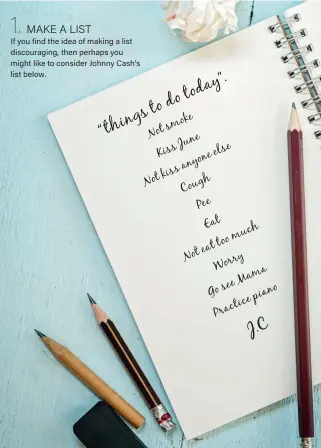 1. MAKE A LIST
If you find the idea of making a list
discouraging, then perhaps you
might like to consider Johnny Cash's
list below.
"things to do today".
Not smoke
Kiss June
Not kiss anyone else
Cough
Pee
Eat
Not eat too much
Worry
Go see Mama
Practice piano
J.C